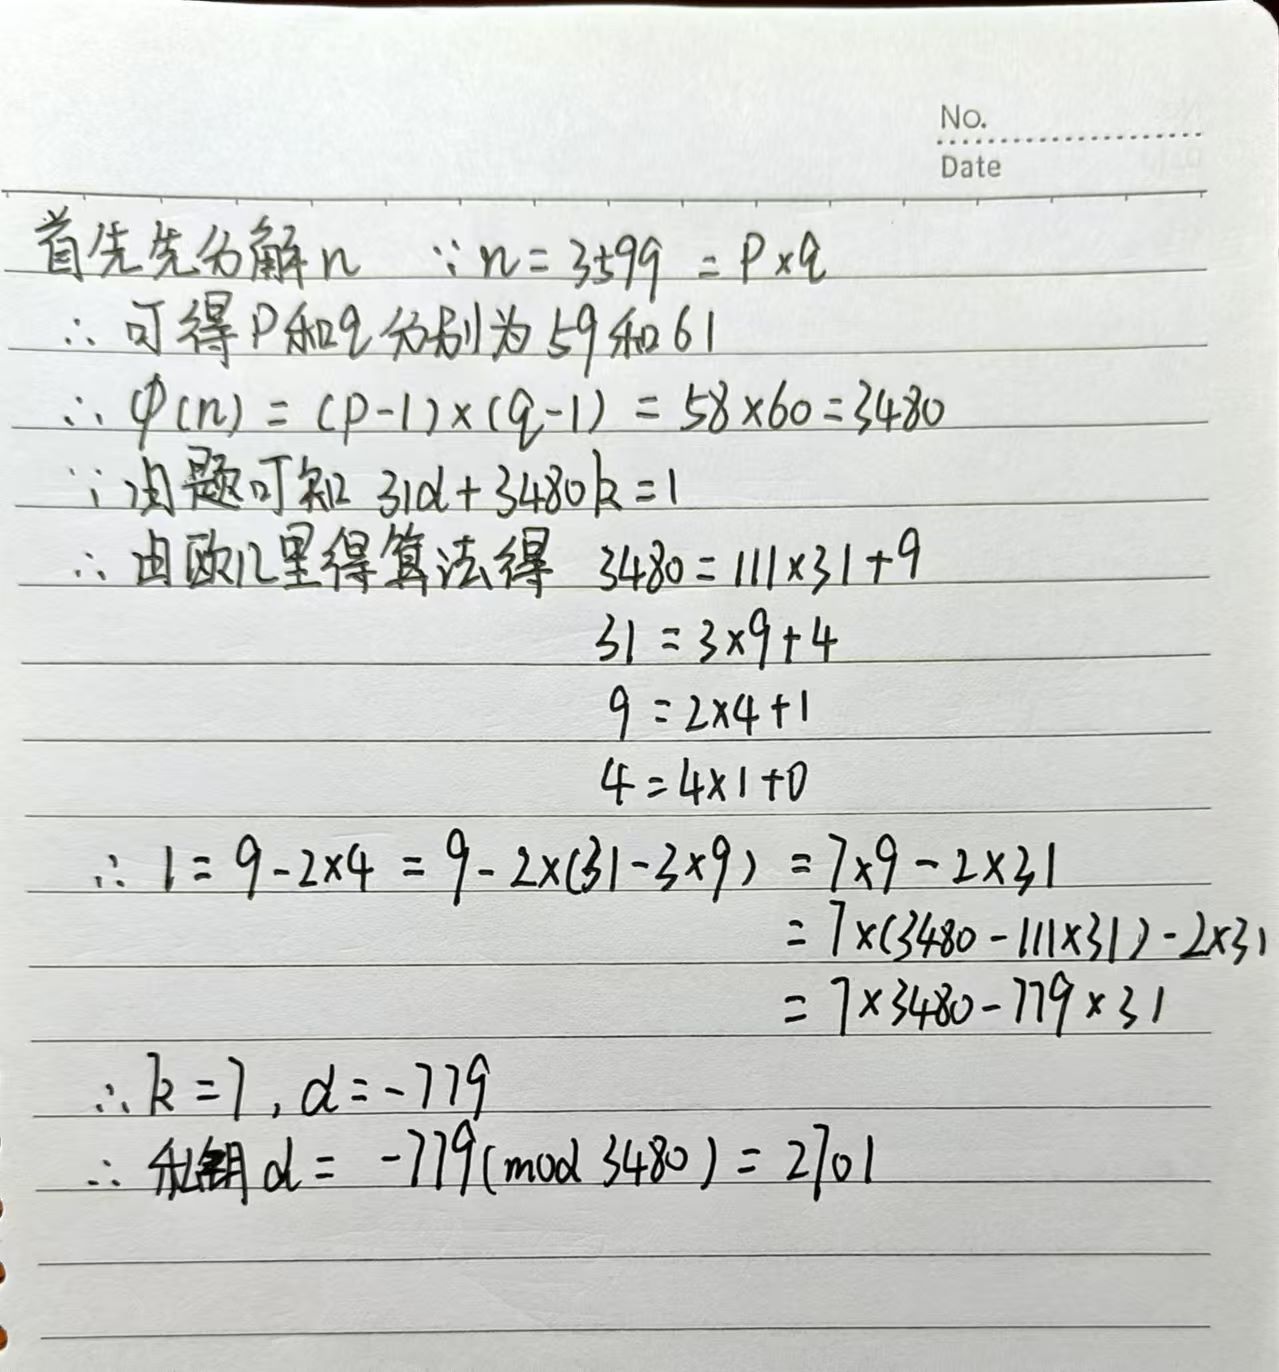 No.
Date
首先先分解n ∵ n = 3599 = P×q
∴ 可得P和q分别为59和61
∴ φ(n) = (p-1)×(q-1) = 58×60=3480
∵ 由题可知 31d+3480k=1
∴ 由欧几里得算法得 3480=111×31+9
31 = 3×9+4
9 = 2×4+1
4=4×1+0
∴ 1= 9-2×4 = 9-2×(31-3×9) = 7×9-2×31
= 7×(3480-111×31)-2×31
= 7×3480-779×31
∴ k=7, d=-779
∴ 私钥d= -779(mod 3480) = 2701